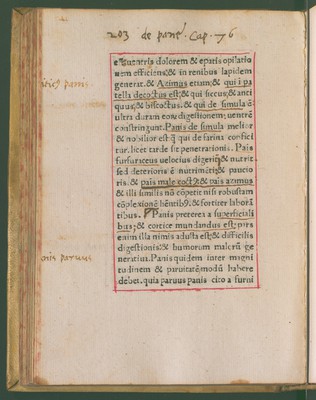 203 de pane. Cap. 76
e uentris dolorem & epatis opilatio
nem efficiens, & in renibus lapidem
generat. & Azimus etiam; & qui i pa
tella decoctus est; & qui siccus; & anti
quus; & biscoctus. & qui de simula é
ultra duram eorum digestionem; uentré
constringunt. Panis de simula melior
& nobilior est qui de farina confici
tur. licet tarde sit penetrationis. Pais
furfuraceus uelocius digerit & nutrit
sed deterioris é nutriméti; & paucio
ris. & pais male coctus; & pais azimus
& illi similis nó cópetit nisi robustam
cóplexioné hétibus. & fortiter labora
tibus. Panis preterea a superficiali
bus; & cortice mundandus est; pars
enim illa nimis adusta est; & difficilis
digestionis; & humorum malorum ge
neratius. Panis quidem inter magni
tudinem & paruitaté modum habere
debet. quia paruus panis cito a furni
panis
nis paruus